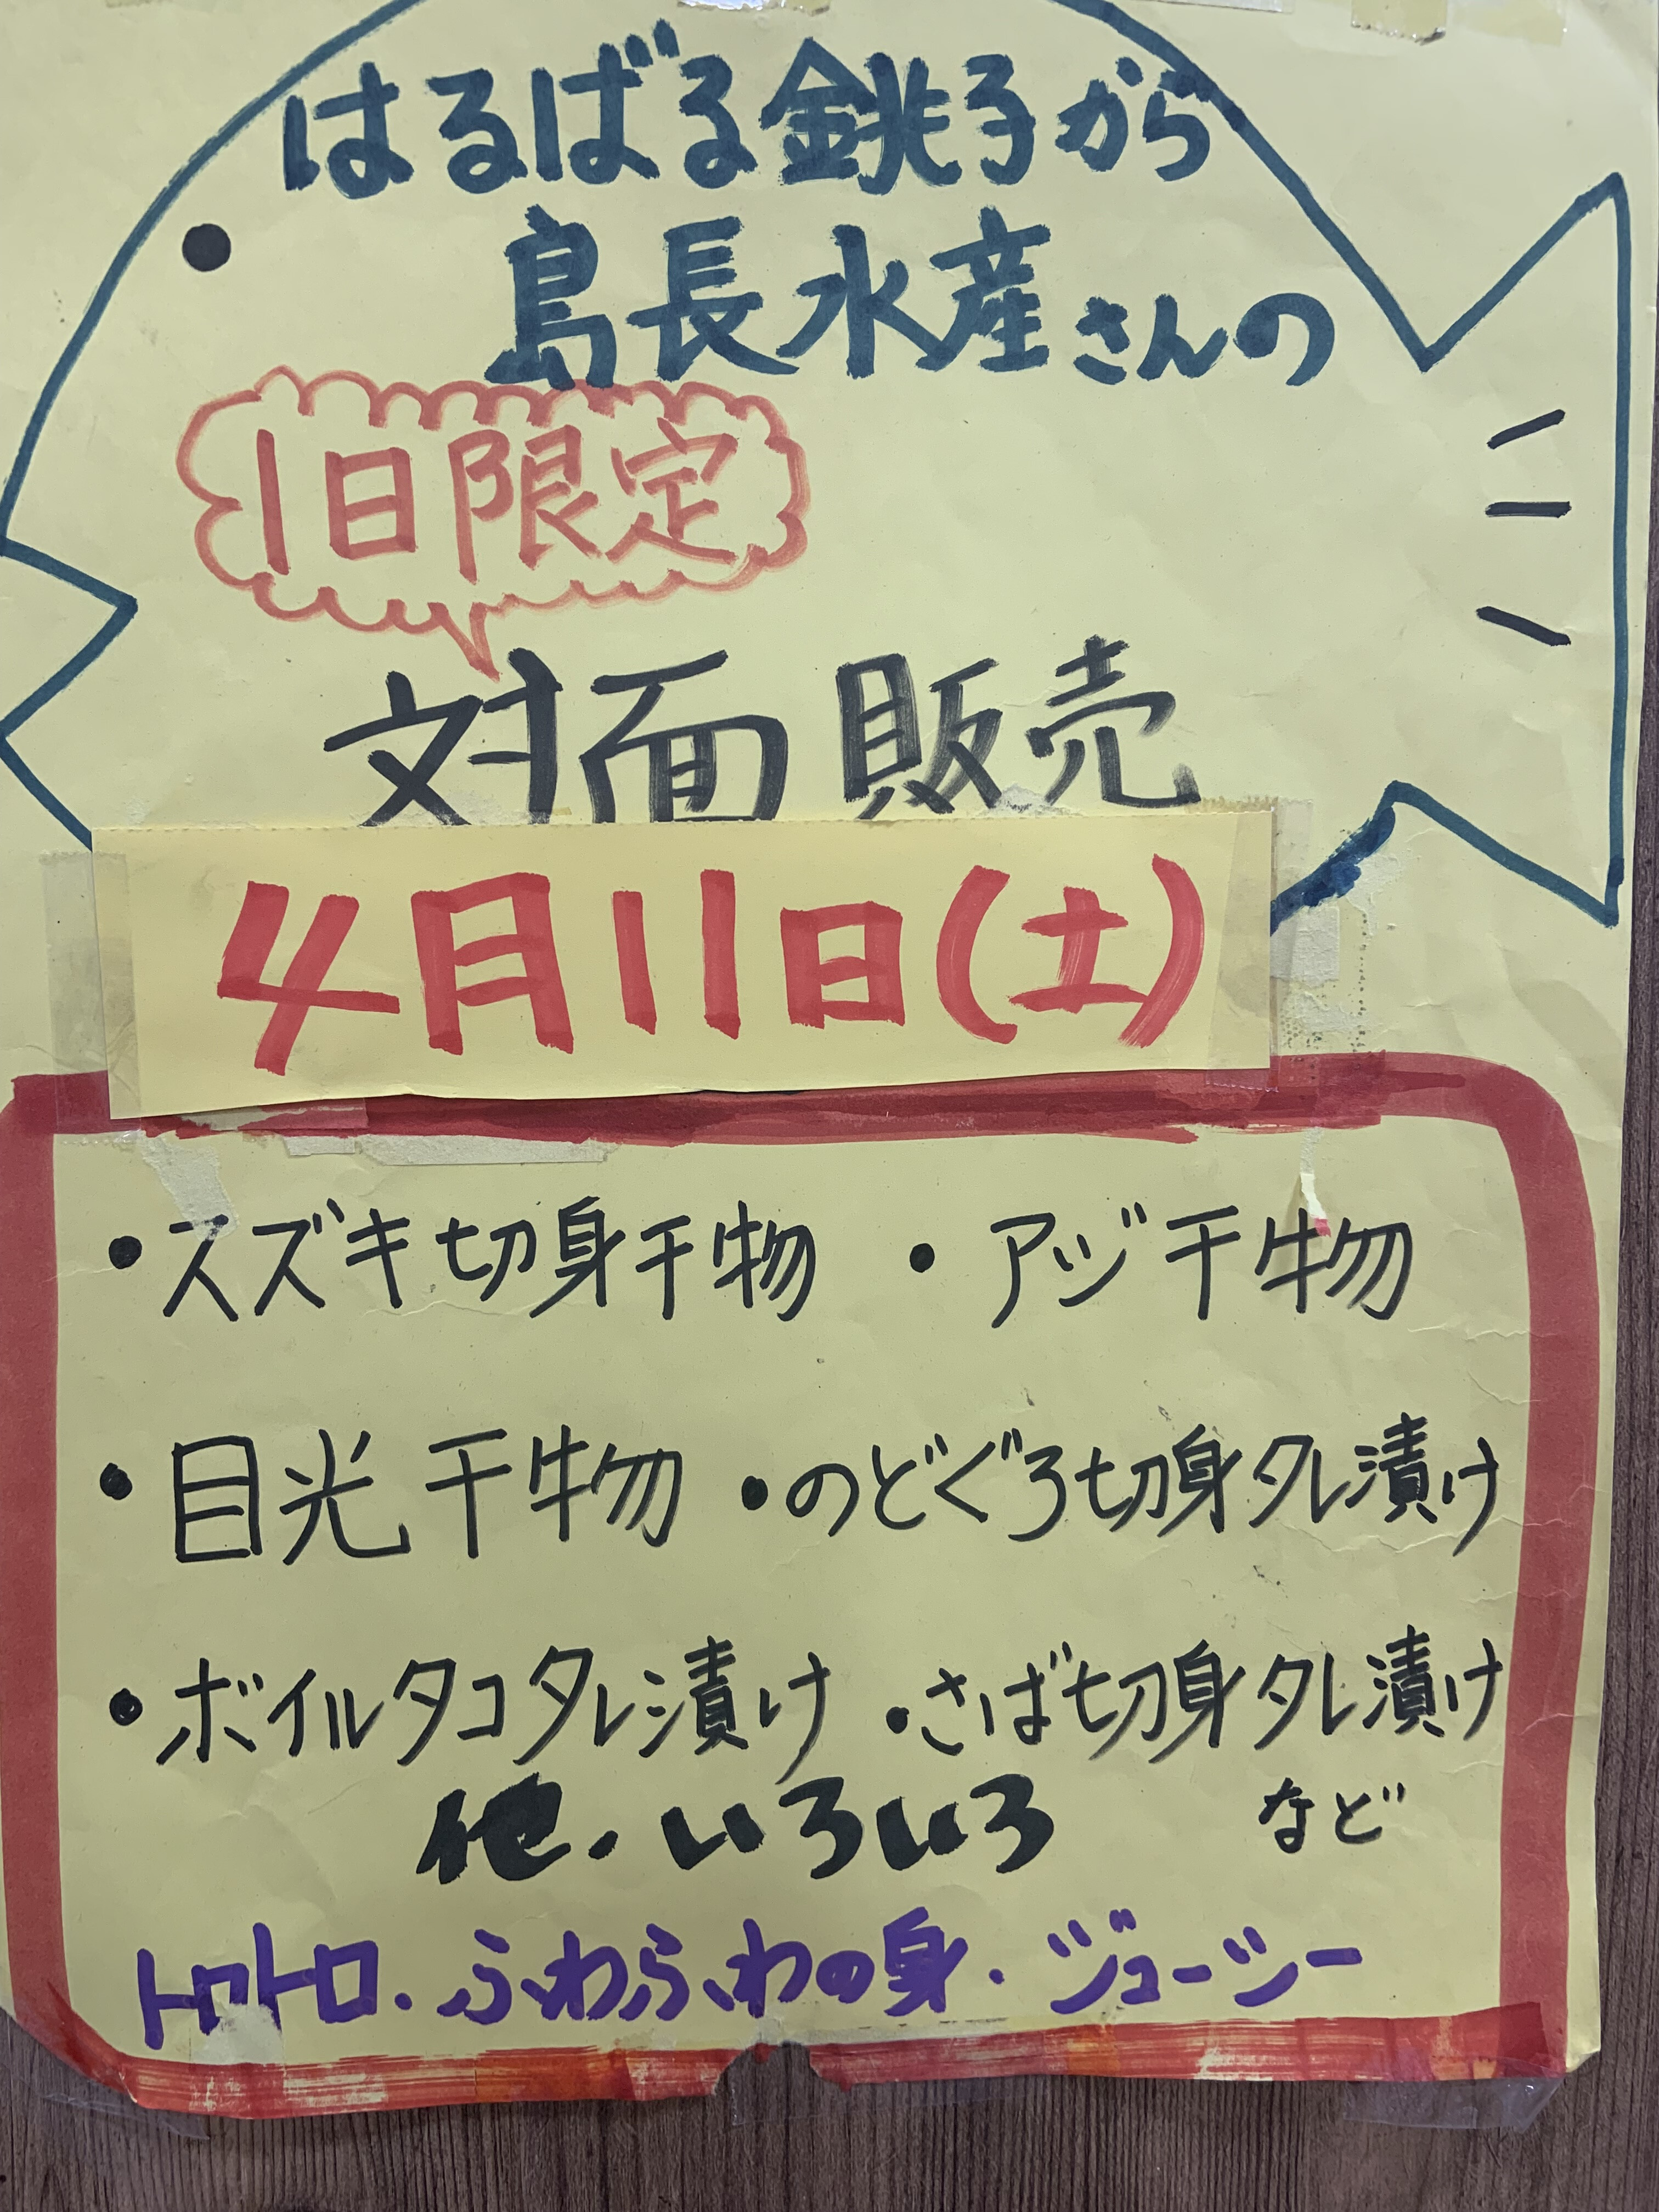 はるばる銚子から
島長水産さんの
1日限定
対面販売
4月11日(土)
・スズキ切身干物 ・アジ干物
・目光干物 ・のどぐろ切身タレ漬け
・ボイルタコタレ漬け ・さば切身タレ漬け
他.いろいろ など
トロトロ.ふわふわの身.ジューシー